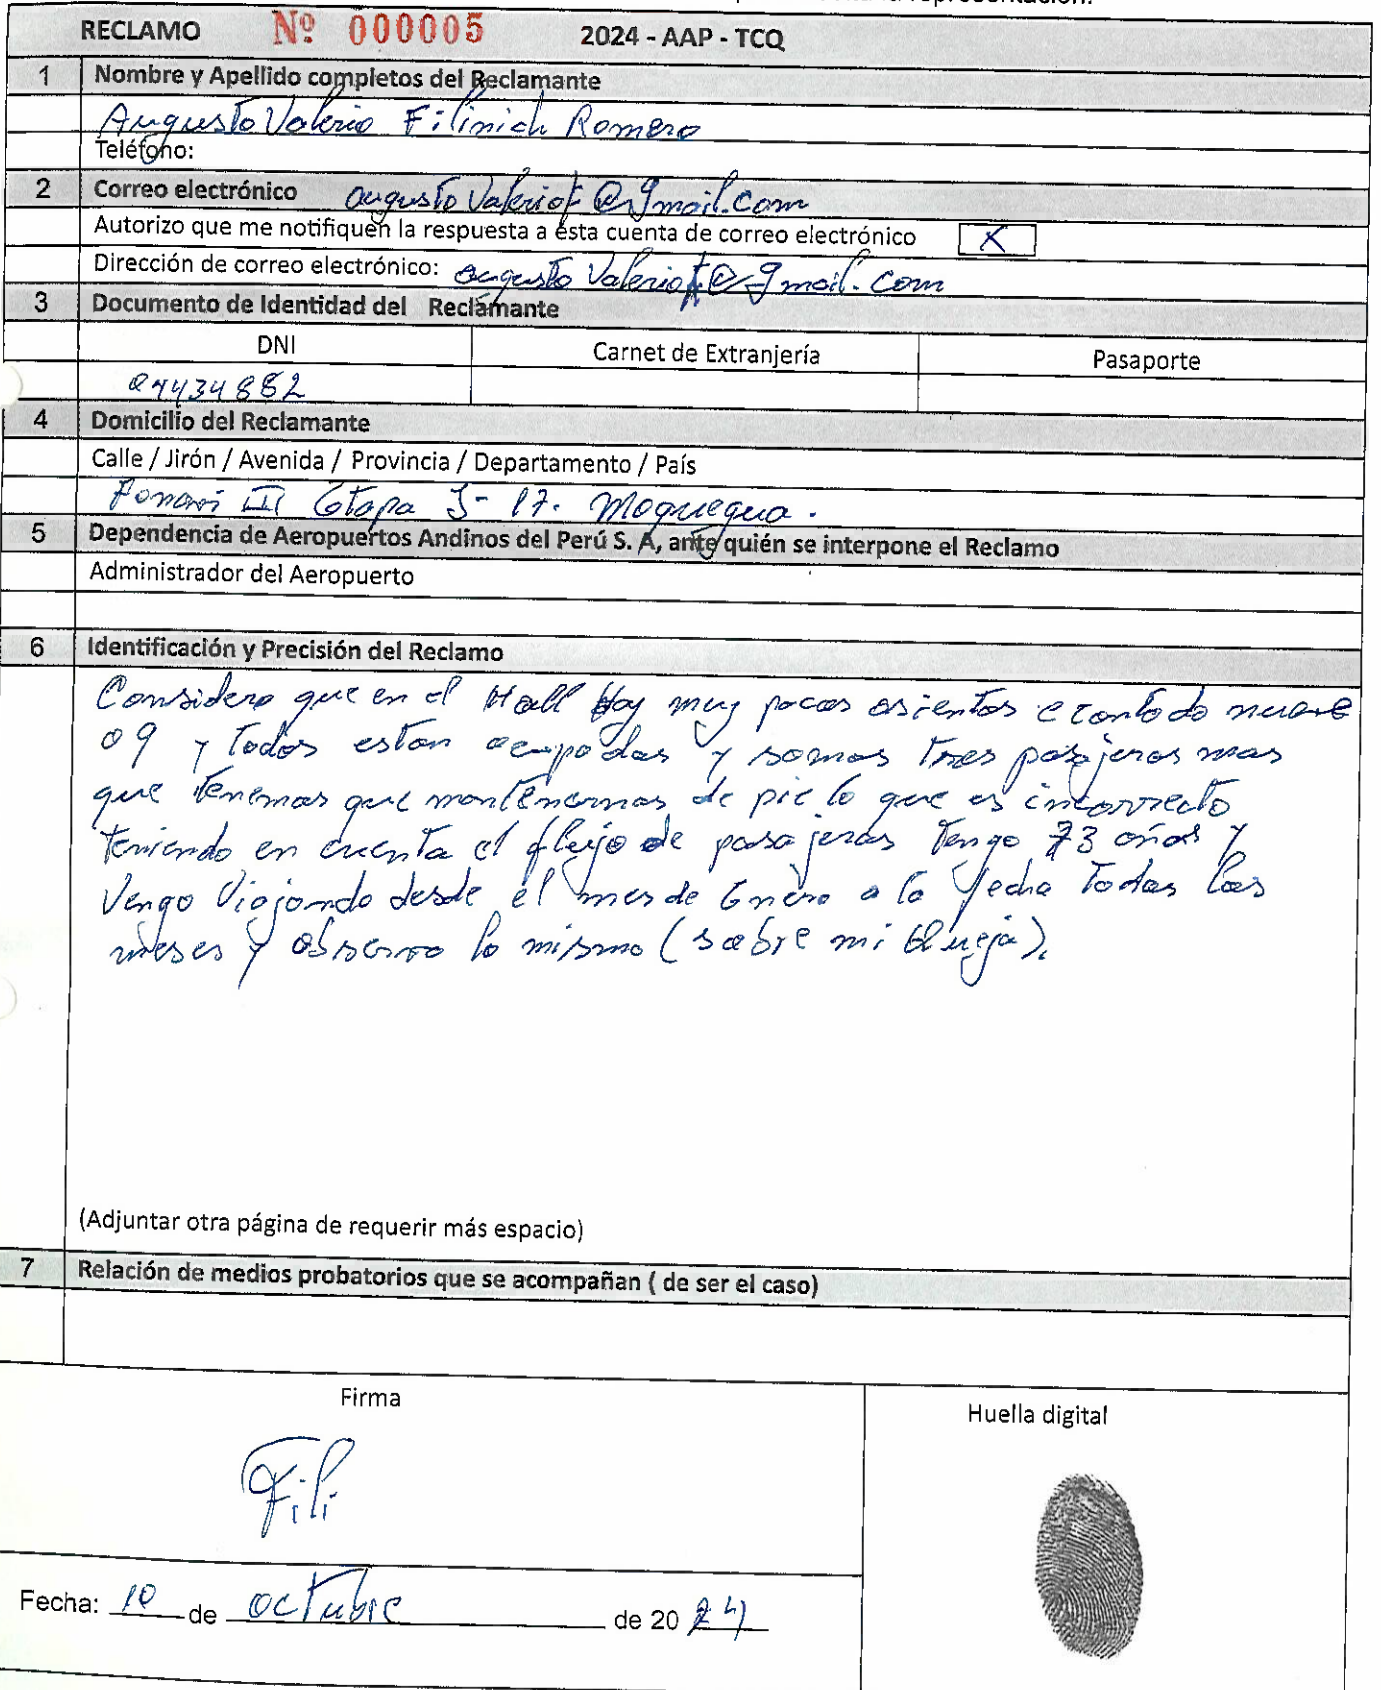 RECLAMO Nº 000005 2024 - AAP - TCQ
1 Nombre y Apellido completos del Reclamante
Augusto Valerio Filinich Romero
Teléfono:
2 Correo electrónico augustoValeriof@gmail.com
Autorizo que me notifiquen la respuesta a ésta cuenta de correo electrónico X
Dirección de correo electrónico: augustoValeriof@gmail.com
3 Documento de Identidad del Reclamante
DNI Carnet de Extranjería Pasaporte
04434882
4 Domicilio del Reclamante
Calle / Jirón / Avenida / Provincia / Departamento / País
Fonavi III Etapa J- 17. Moquegua.
5 Dependencia de Aeropuertos Andinos del Perú S. A, ante quién se interpone el Reclamo
Administrador del Aeropuerto
6 Identificación y Precisión del Reclamo
Considero que en el Hall Hay muy pocos asientos e contado nueve
09 y todos estan ocupados y somos tres pasajeros mas
que tenemos que mantenernos de pie lo que es incorrecto
teniendo en cuenta el flujo de pasajeros tengo 73 años y
Vengo Viajando desde el mes de Enero a la fecha todos los
meses y observo lo mismo (sobre mi queja).
(Adjuntar otra página de requerir más espacio)
7 Relación de medios probatorios que se acompañan ( de ser el caso)
Firma Huella digital
Fili
Fecha: 10 de octubre de 20 24